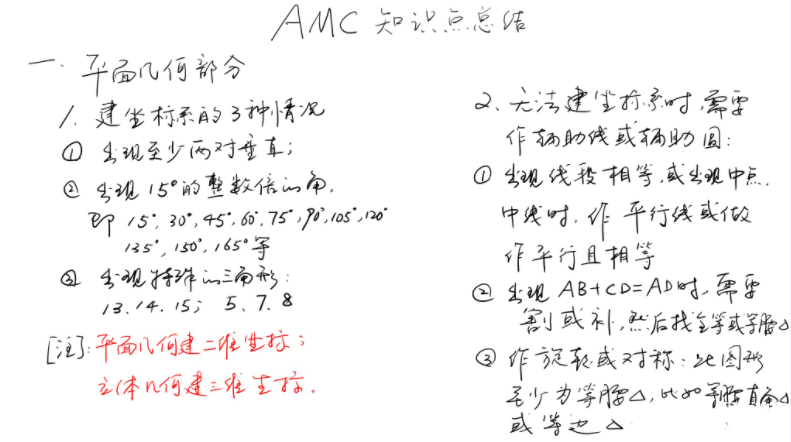 AMC 知识点总结
一. 平面几何部分
1. 建坐标系的3种情况
① 出现至少两对垂直;
② 出现15°的整数倍的角,
即 15°, 30°, 45°, 60°, 75°, 90°, 105°, 120°
135°, 150°, 165°等
③ 出现特殊的三角形:
13. 14. 15; 5. 7. 8
[注]: 平面几何建二维坐标;
立体几何建三维坐标.
2. 无法建坐标系时,需要
作辅助线或辅助圆:
① 出现线段相等,或出现中点.
中线时. 作 平行线或做
作平行且相等
② 出现 AB+CD=AD时, 需要
割或补,然后找全等或等腰△
③ 作旋转或对称: 此图形
至少为等腰△, 比如等腰直角△
或等边△